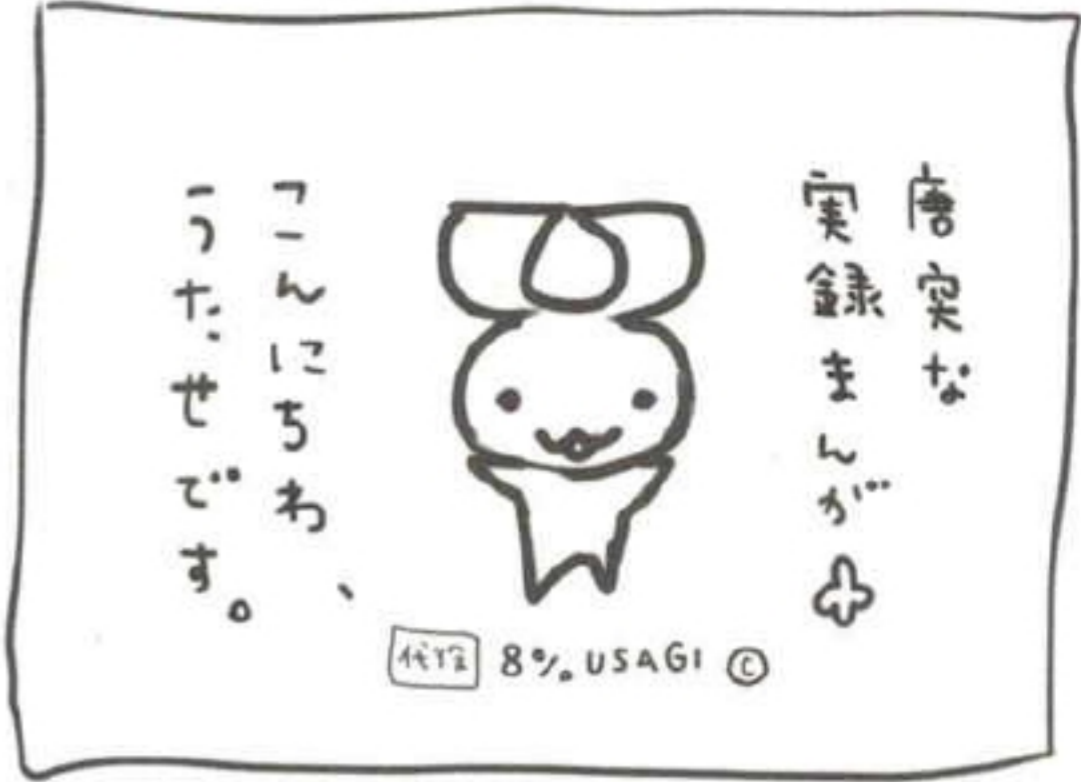 唐突な
実録まんが
こんにちわ、
うたせです。
代役 8% USAGI ©